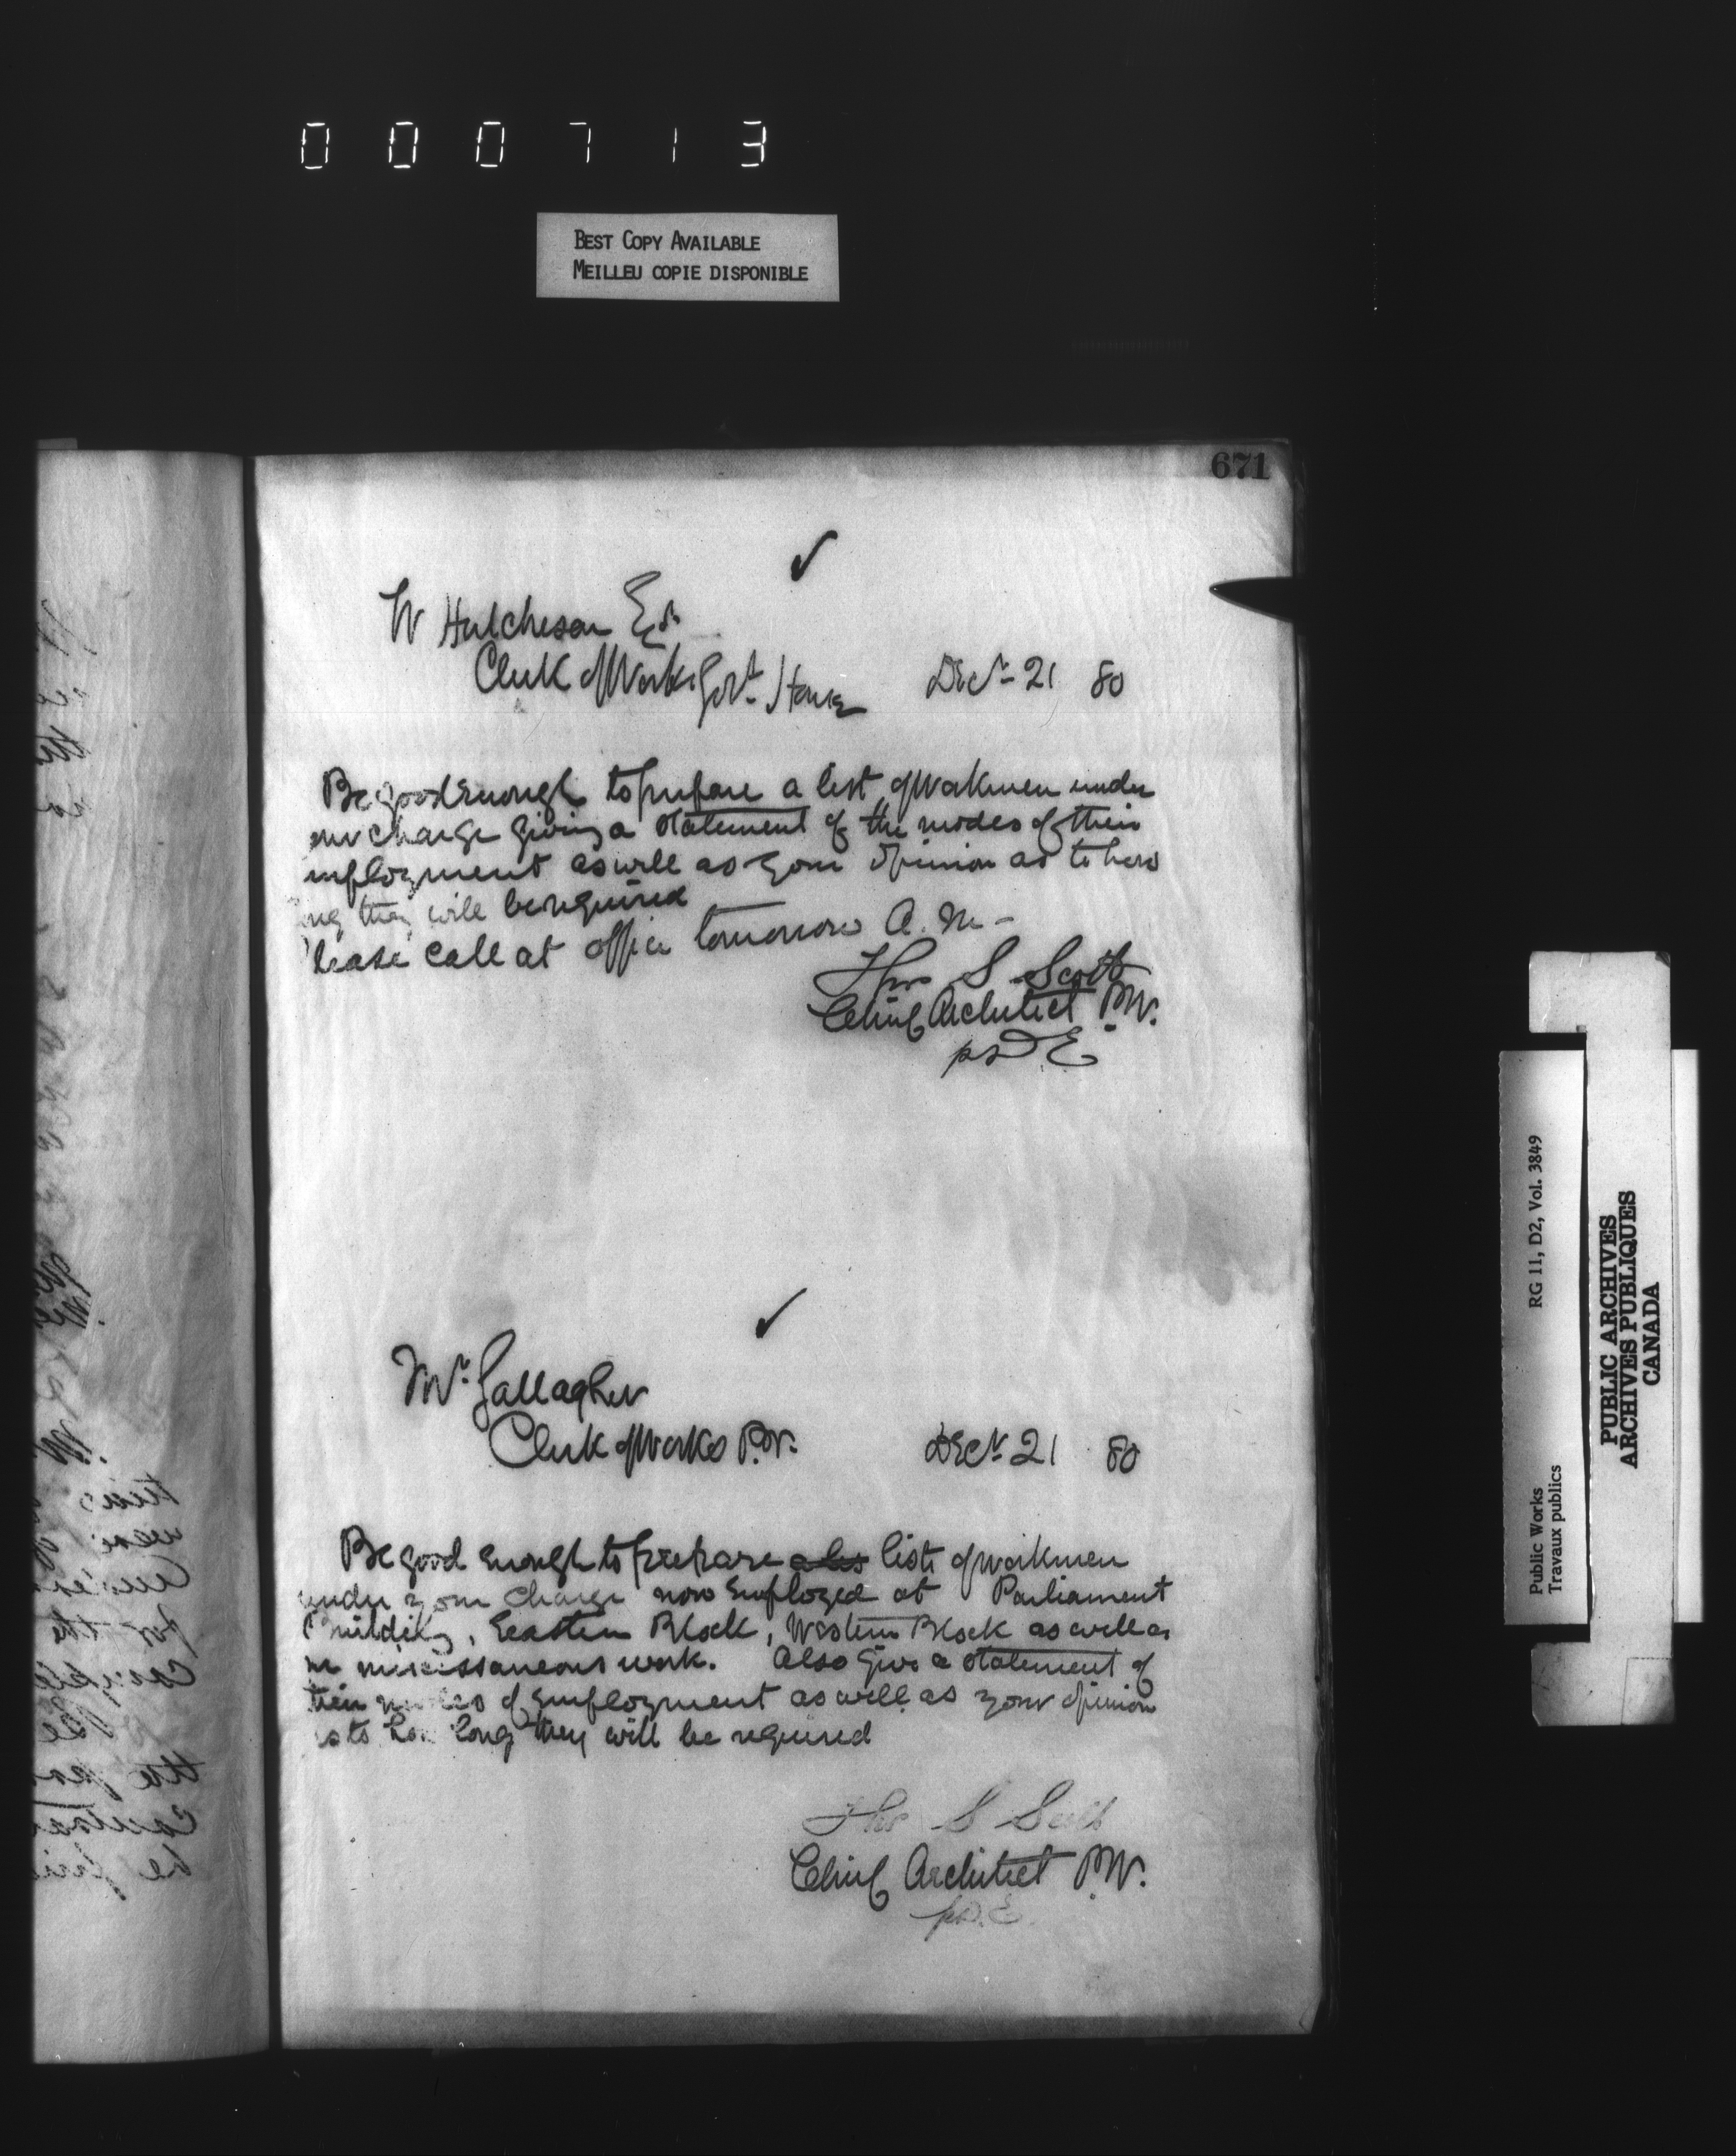 000713
BEST COPY AVAILABLE
MEILLEU COPIE DISPONIBLE
671
W Hutcheson Esr
Clerk of Works Govt House Decr 21 80
Be good enough to prepare a list of workmen under
our charge giving a statement of the modes of their
mployment as well as your opinion as to how
ng they will be required
lease call at office tomorrow A.M-
Thos S Scott
Chief Architect P.W.
pr D.E
Mr Gallagher
Clerk of Works P.W. Decr 21 80
Be good enough to prepare a lis lists of workmen
under your charge now employed at Parliament
Building, Eastern Block, Western Block as well as
on miscessaneous work. Also give a statement of
their modes of employment as well as your opinion
as to how long they will be required
Thos S Scott
Chief Architect P.W.
pr D.E.
Public Works
Travaux publics
RG 11, D2, Vol. 3849
PUBLIC ARCHIVES
ARCHIVES PUBLIQUES
CANADA